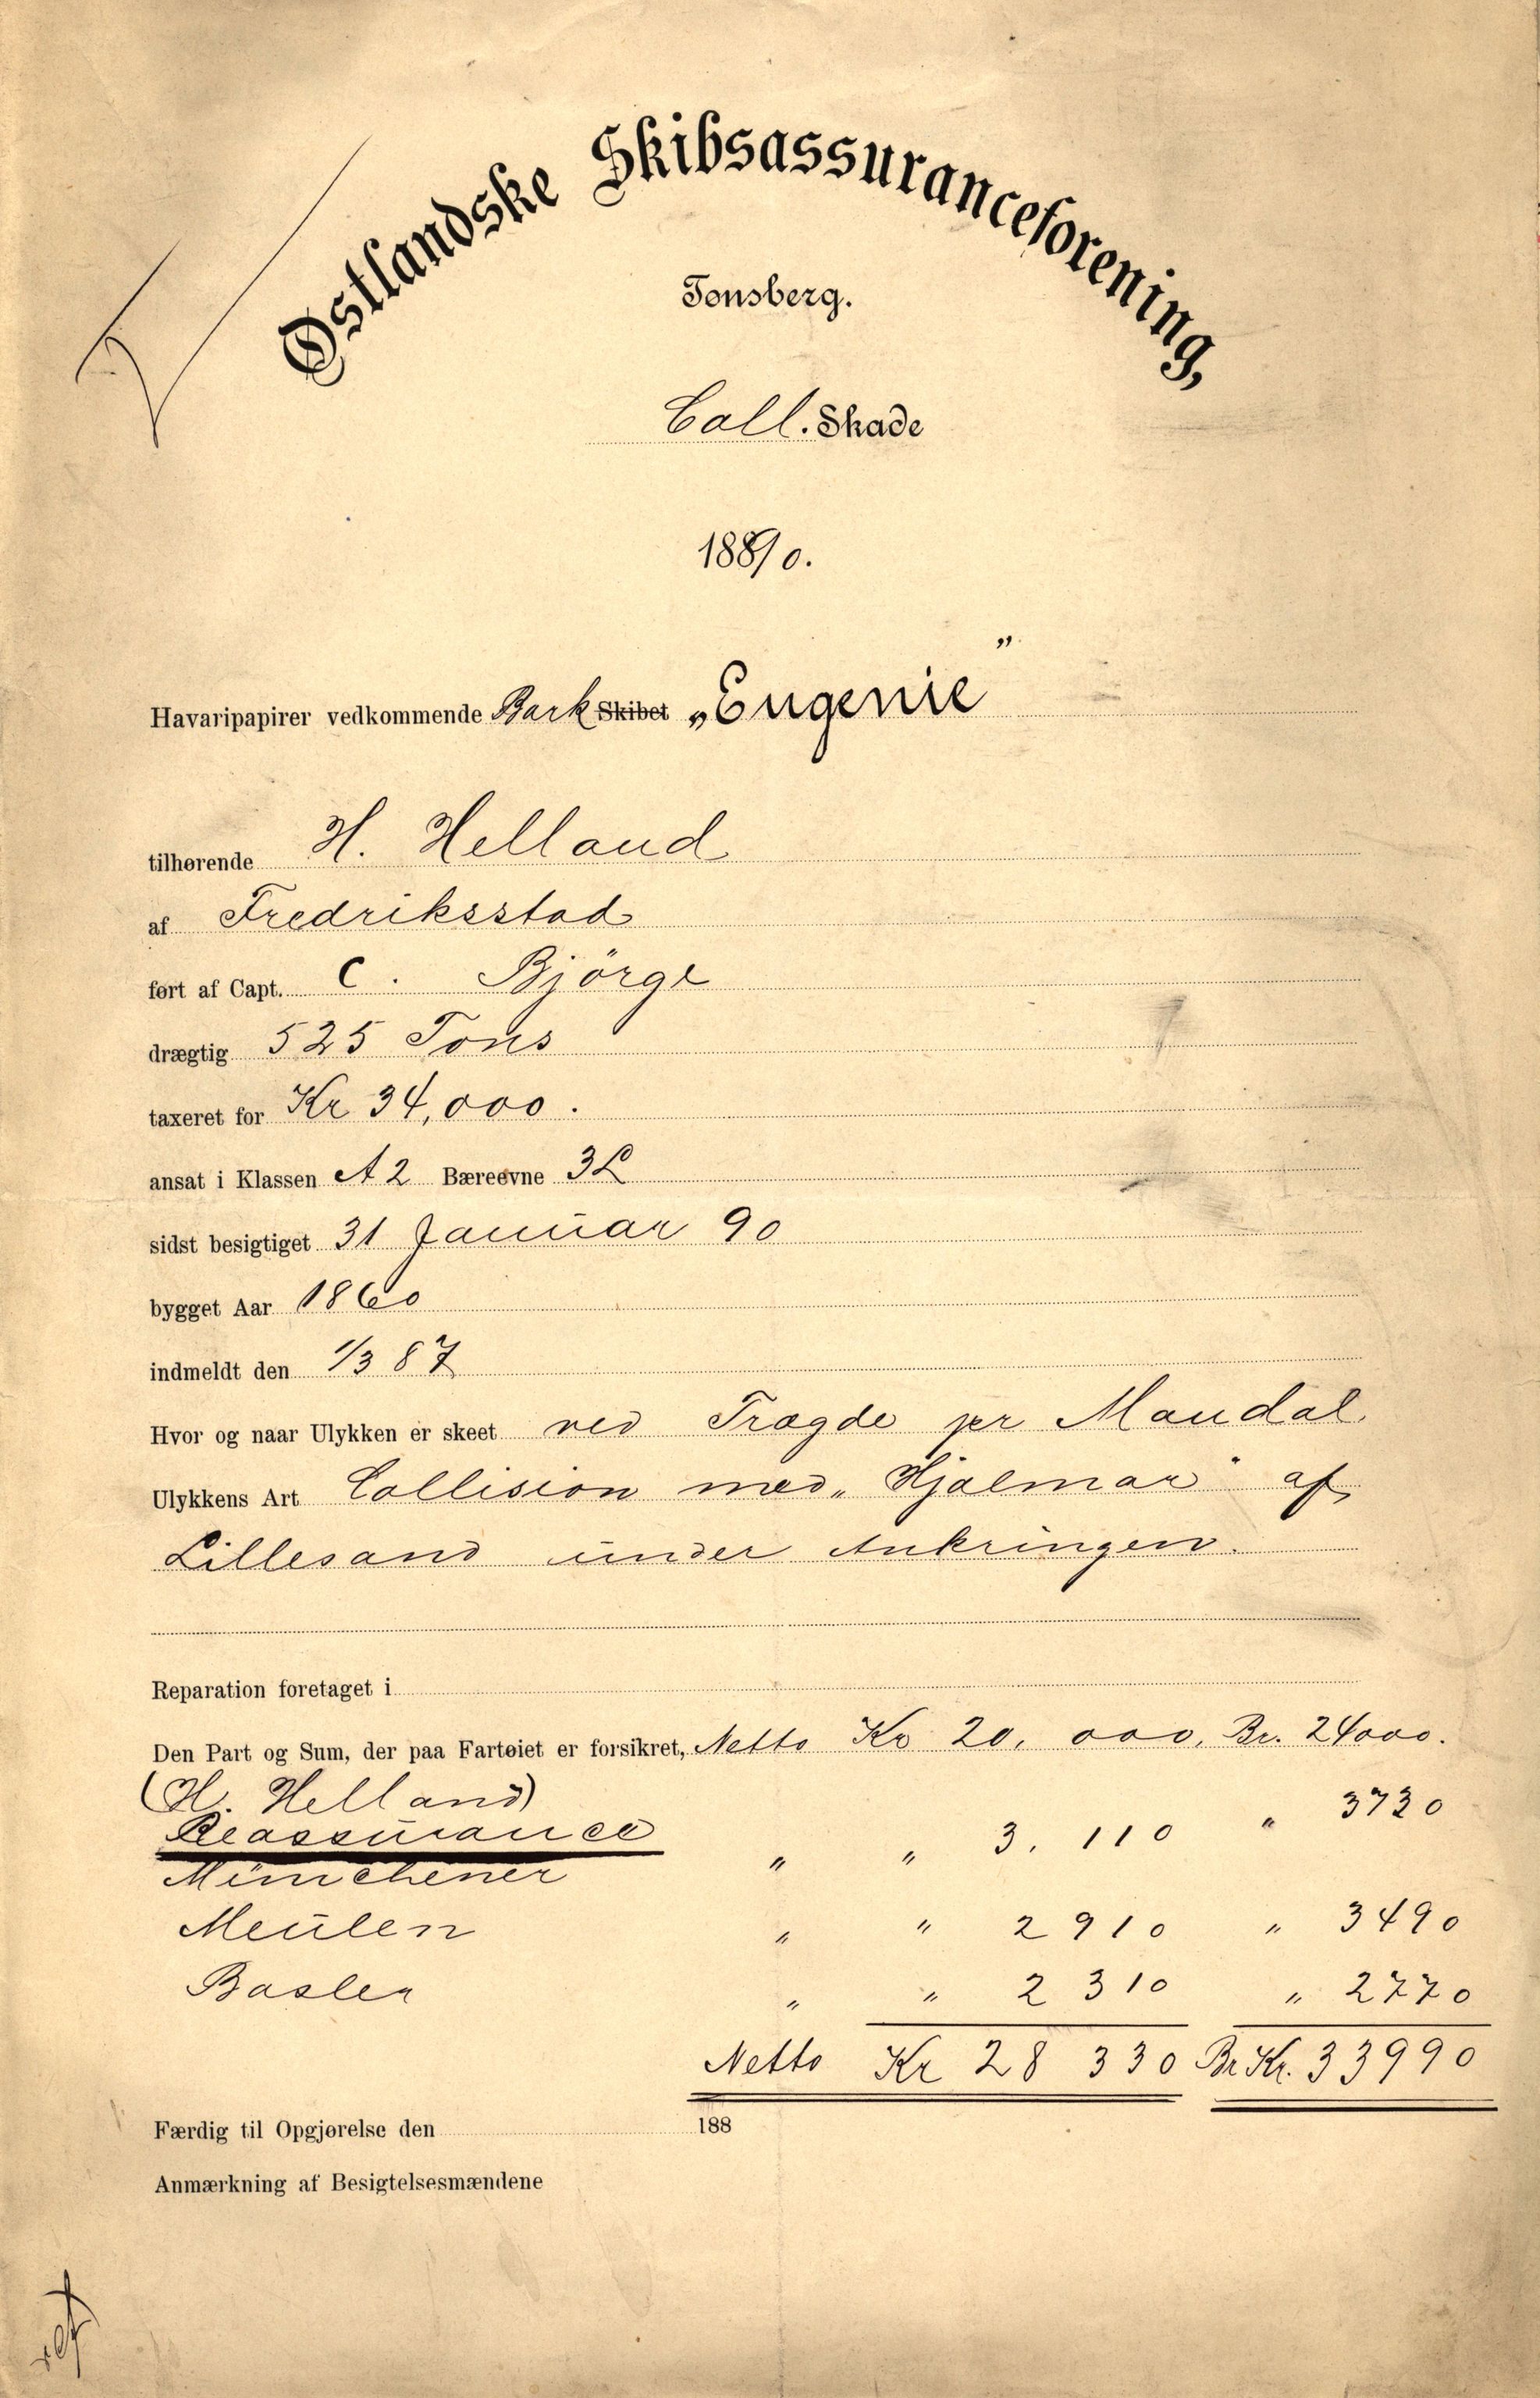 Østlandske Skibsassuranceforening,
Tønsberg.
Coll. Skade
1890.
Havaripapirer vedkommende Bark Skibet „Eugenie”
tilhørende H. Helland
af Fredriksstad
ført af Capt. C. Björge
drægtig 525 Tons
taxeret for Kr 34,000.
ansat i Klassen A 2 Bæreevne 3L
sidst besigtiget 31 Januar 90
bygget Aar 1860
indmeldt den 1/3 87
Hvor og naar Ulykken er skeet ved Tragde pr Mandal.
Ulykkens Art Collision med „Hjalmar" af
Lillesand under Ankringen.
Reparation foretaget i
Den Part og Sum, der paa Fartøiet er forsikret, Netto Kr 20,000, Br. 24000.
(H. Helland)
Reassurance
Münchener " " 3.110 " 3730
Meülen " " 2910 " 3490
Basler " " 2310 " 2770
Netto Kr 28 330 Br Kr. 33990
Færdig til Opgjørelse den 188
Anmærkning af Besigtelsesmændene